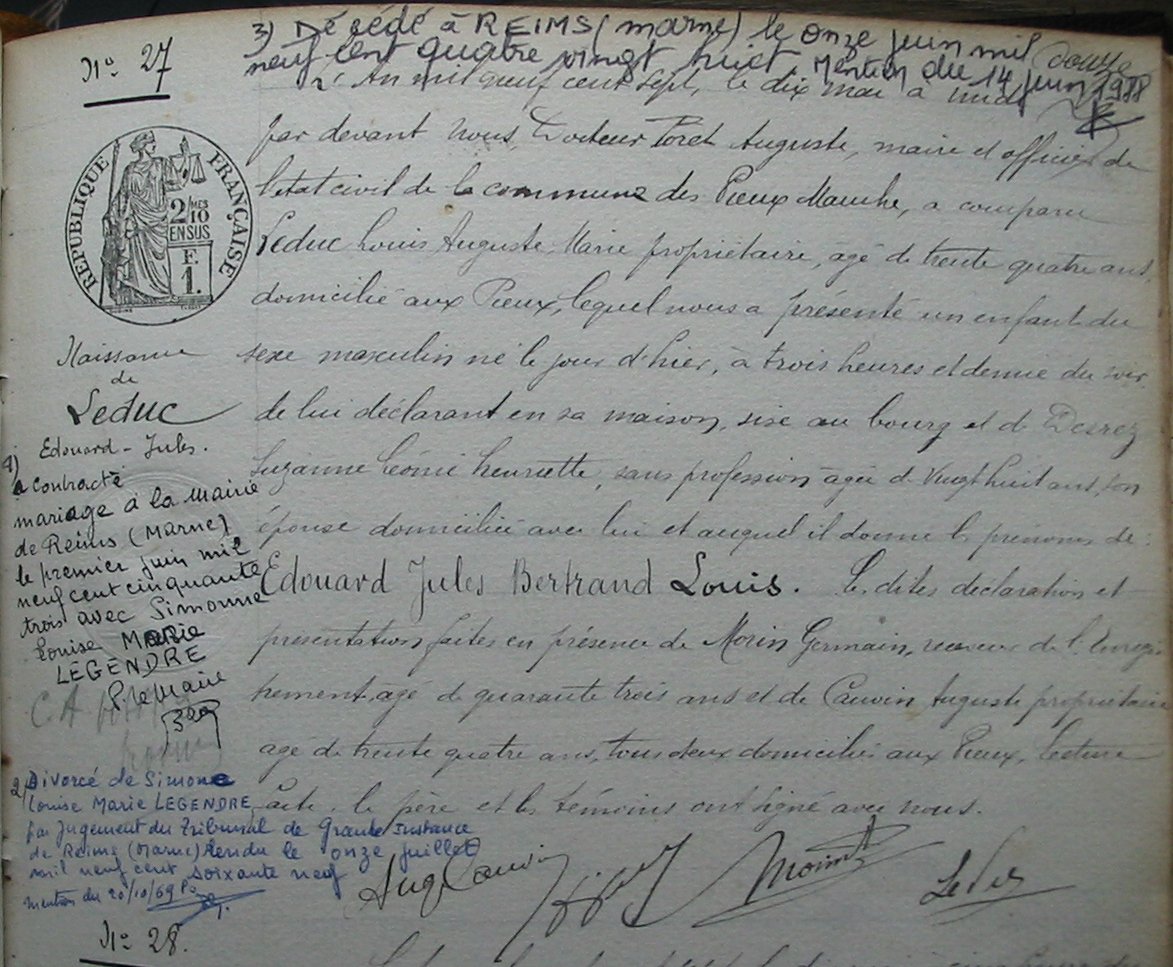 3) Décédé à REIMS (marne) le onze juin mil
neuf cent quatre vingt huit. Mention du 14 juin 1988
N° 27
L'An mil neuf cent sept, le dix mai à midi
par devant Nous, Docteur Poret Auguste, maire et officier de
l'état civil de la commune des Pieux Manche, a comparu
Leduc Louis Auguste Marie propriétaire, âgé de trente quatre ans,
domicilié aux Pieux, lequel nous a présenté un enfant du
sexe masculin né le jour d'hier, à trois heures et demie du soir
de lui déclarant en sa maison, sise au bourg et de Desrez
Suzanne Léonie Henriette, sans profession âgée de Vingt huit ans, son
épouse domiciliée avec lui et auquel il donne les prénoms de :
Edouard Jules Bertrand Louis. Les dites déclaration et
présentation faites en présence de Morin Germain, receveur de l'Enregis
trement, âgé de quarante trois ans et de Cauvin Auguste propriétaire
âgé de trente quatre ans, tous deux domiciliés aux Pieux, lecture
faite, le père et les témoins ont signé avec nous.
Aug Cauvin
Morin
Leduc
RÉPUBLIQUE FRANÇAISE
2/10
MES
EN SUS
F.
1.
Naissance
de
Leduc
Edouard-Jules.
1)
a contracté
mariage à la Mairie
de Reims (Marne)
le premier juin mil
neuf cent cinquante
trois avec Simonne
Louise Marie
LEGENDRE
P. le Maire
2) Divorcé de Simone
Louise Marie LEGENDRE
par Jugement du Tribunal de Grande Instance
de Reims (Marne) rendu le onze juillet
mil neuf cent soixante neuf
mention du 20/10/69
N° 28.